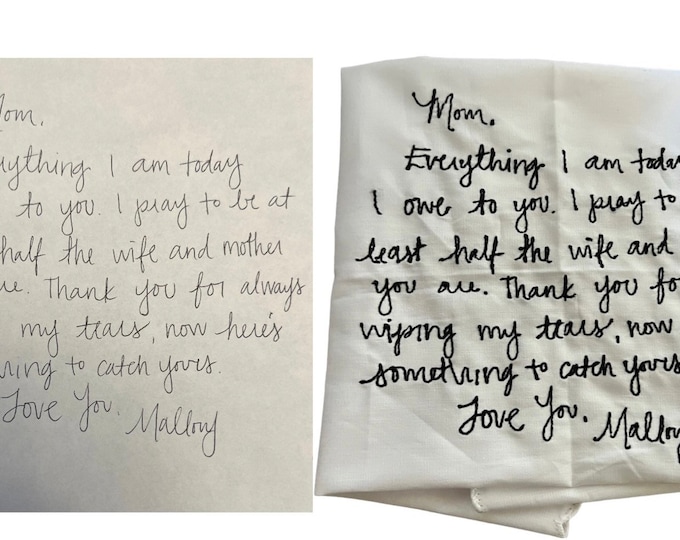 Mom.
rything I am today
to you. I pray to be at
half the wife and mother
are. Thank you for always
my tears, now here's
thing to catch yours.
Love You.
Mallory
Mom.
Everything I am today
I owe to you. I pray to
least half the wife and
you are. Thank you for
wiping my tears, now
something to catch yours
Love You.
Mallory